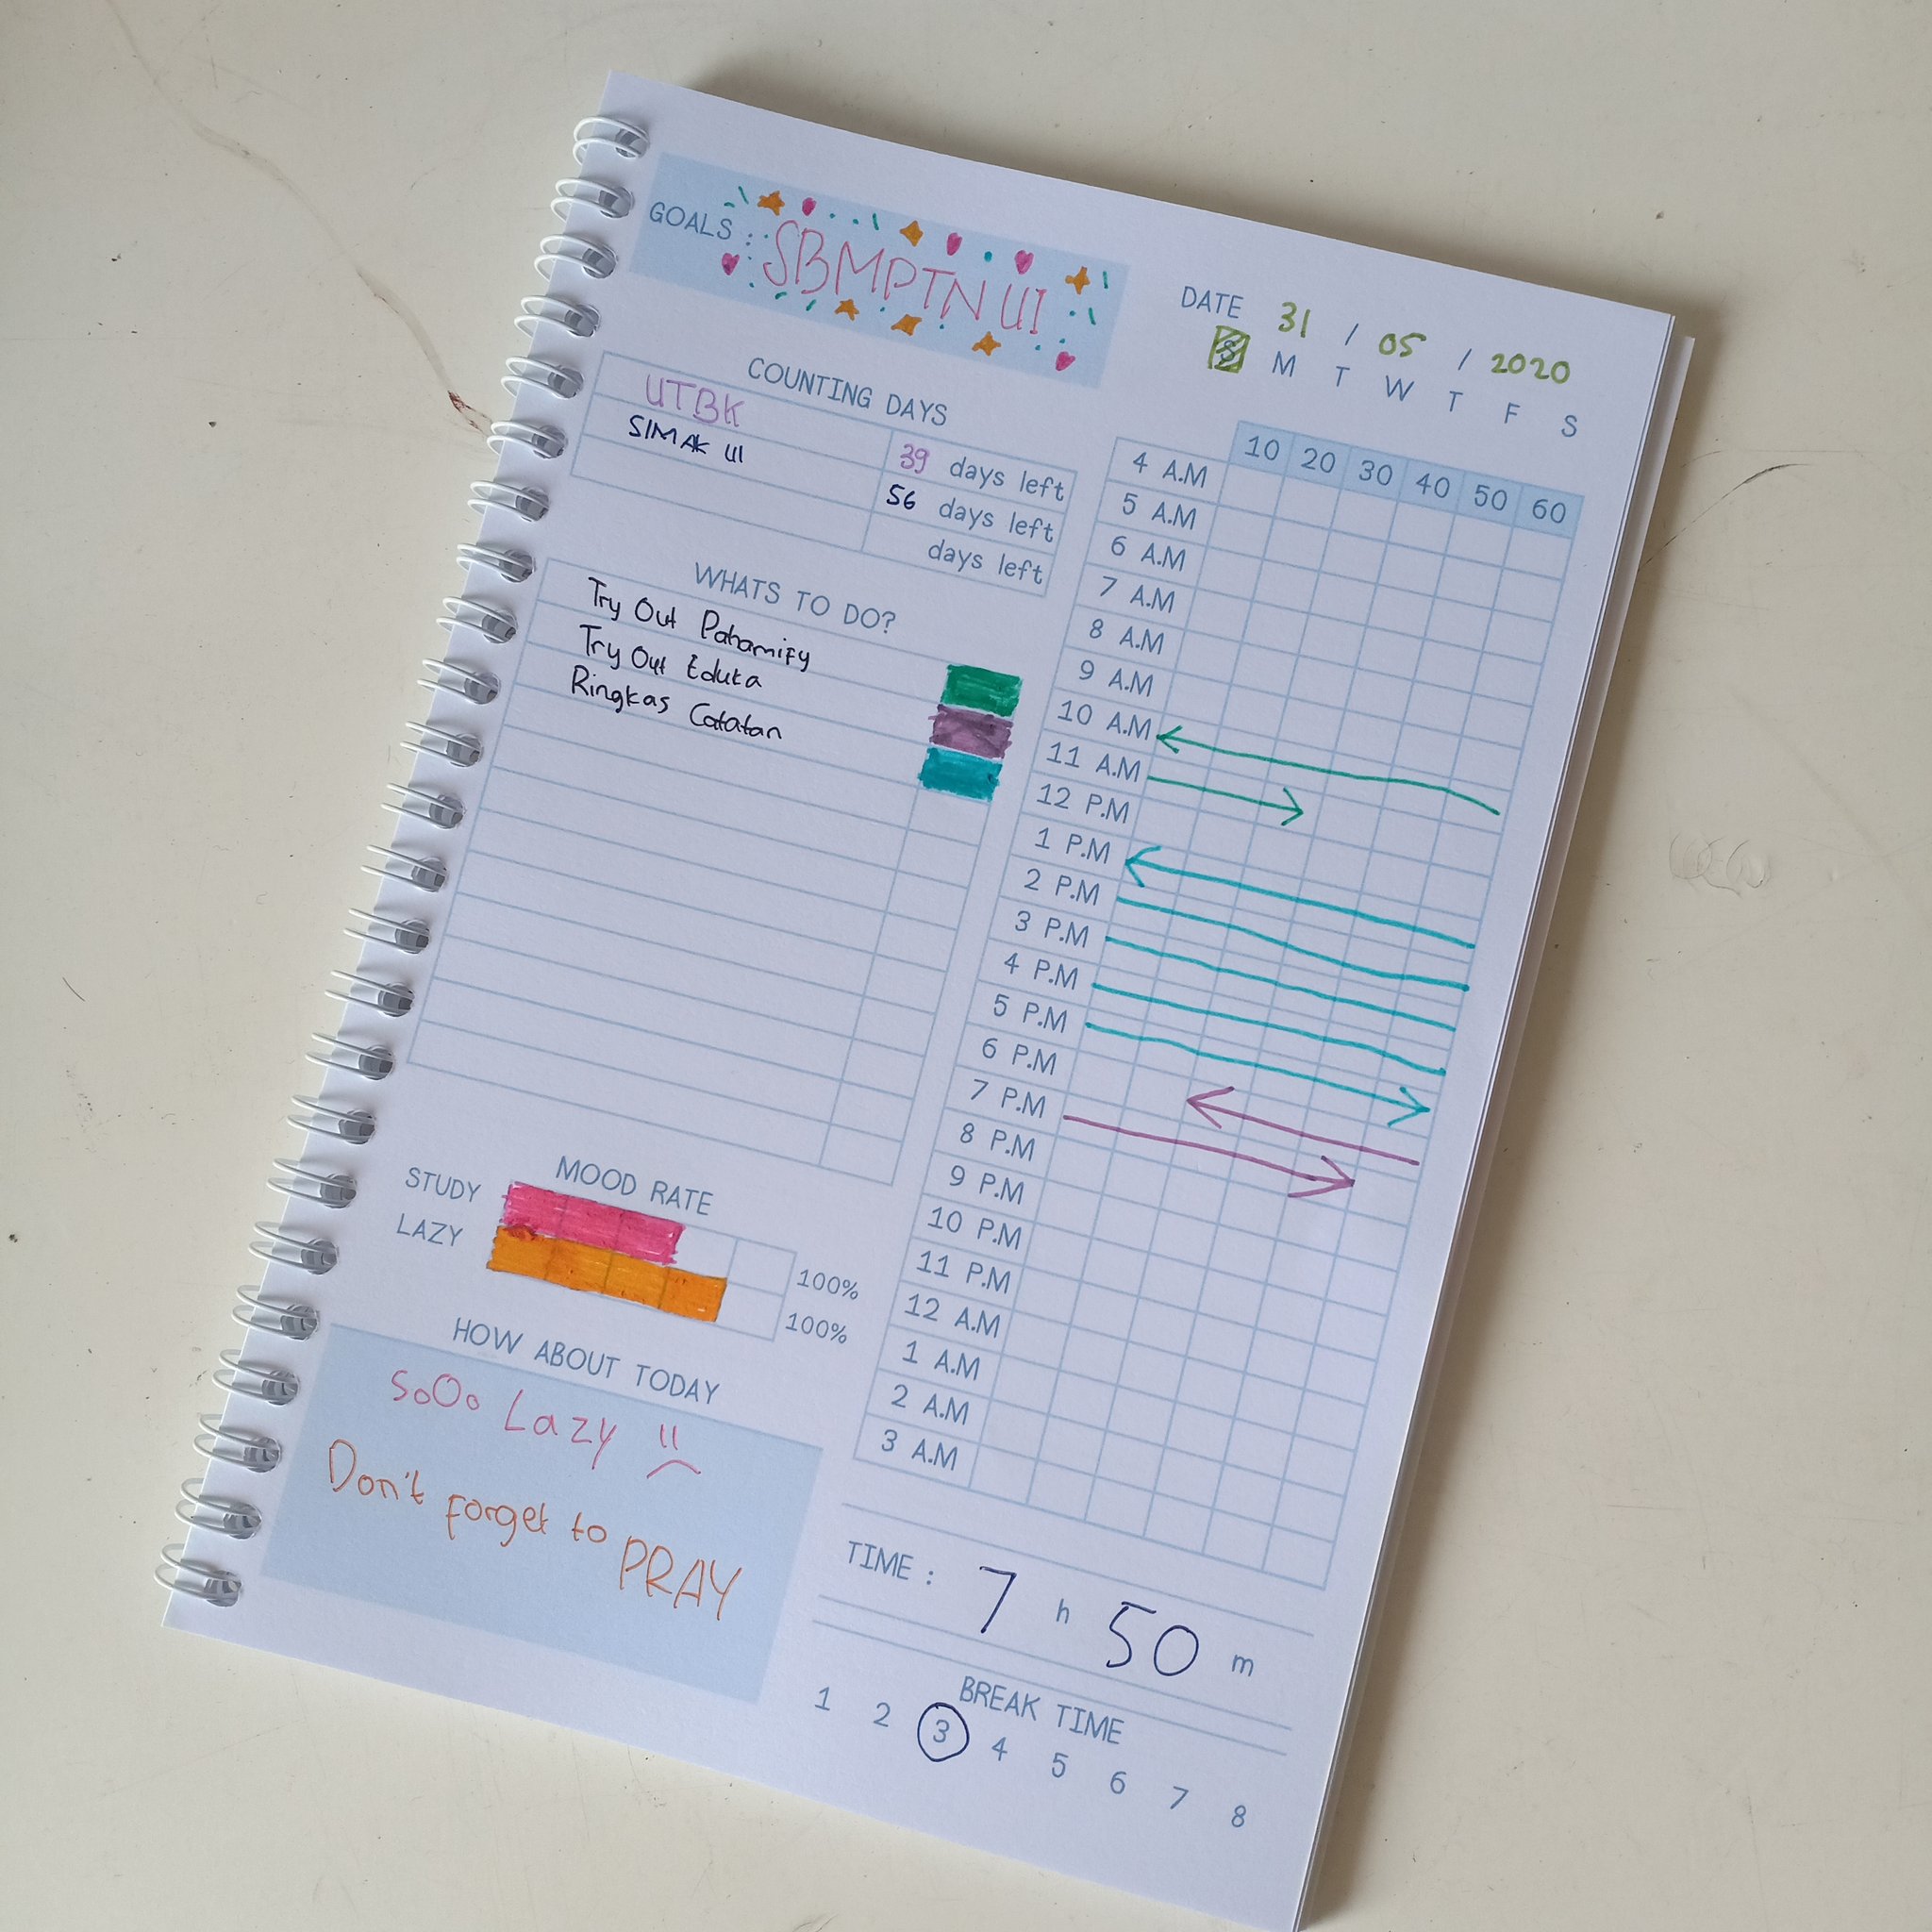 GOALS : SBMPTN UI
DATE 31 / 05 / 2020
S M T W T F S
COUNTING DAYS
UTBK 39 days left
SIMAK UI 56 days left
days left
WHATS TO DO?
Try Out Pahamify
Try Out Eduka
Ringkas Catatan
MOOD RATE
STUDY 100%
LAZY 100%
HOW ABOUT TODAY
SoOo Lazy
Don't forget to PRAY
10 20 30 40 50 60
4 A.M
5 A.M
6 A.M
7 A.M
8 A.M
9 A.M
10 A.M
11 A.M
12 P.M
1 P.M
2 P.M
3 P.M
4 P.M
5 P.M
6 P.M
7 P.M
8 P.M
9 P.M
10 P.M
11 P.M
12 A.M
1 A.M
2 A.M
3 A.M
TIME : 7 h 50 m
BREAK TIME
1 2 3 4 5 6 7 8